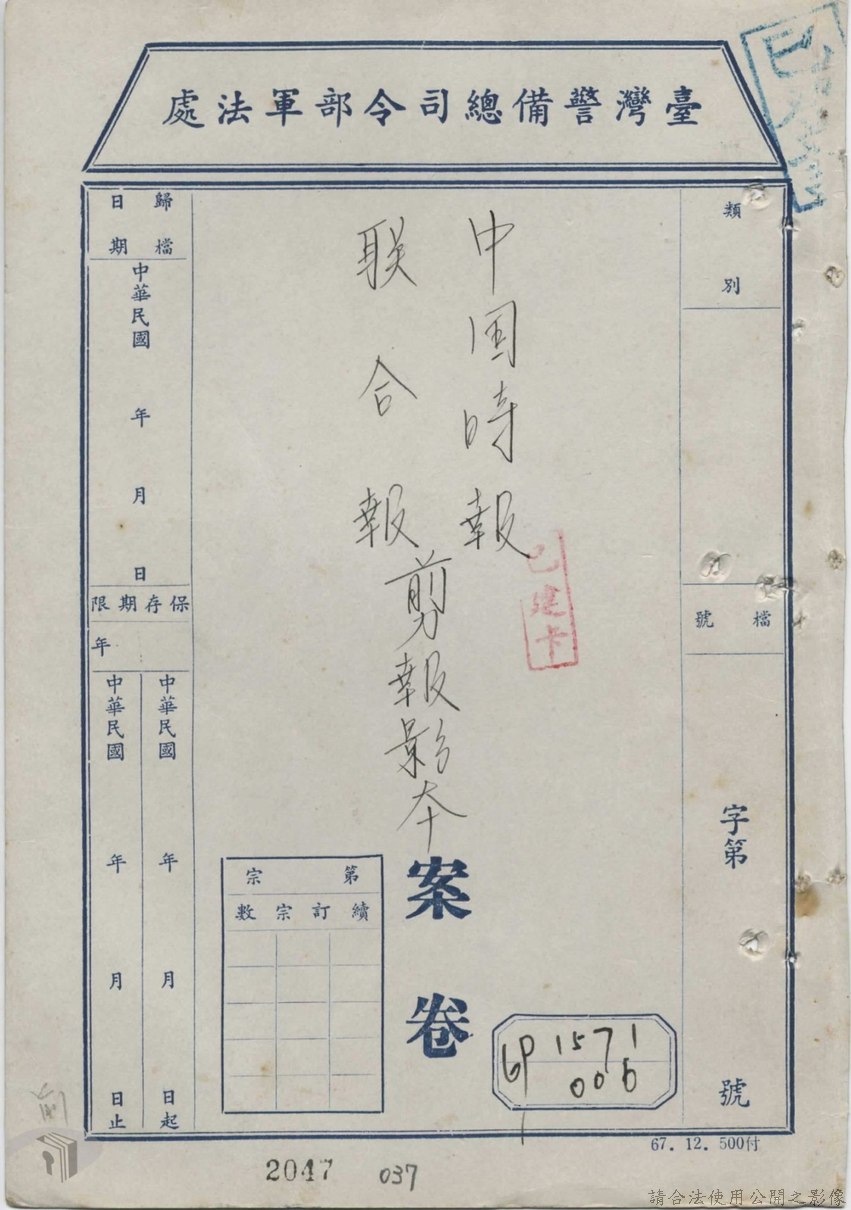 臺灣警備總司令部軍法處
類別
檔號
字第
號
中国時報
联合報
剪報影本
案卷
已建卡
第宗
續訂宗數
6P 1571
006
歸檔日期
中華民國 年 月 日
保存期限
年
中華民國 年 月 日起
中華民國 年 月 日止
67. 12. 500付
2047
037
請合法使用公開之影像